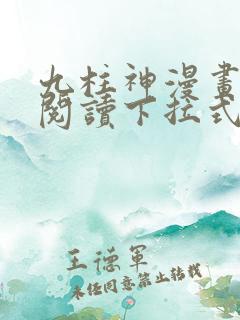 九柱神漫畫
閱讀下拉式
王德軍
未經同意禁止轉載